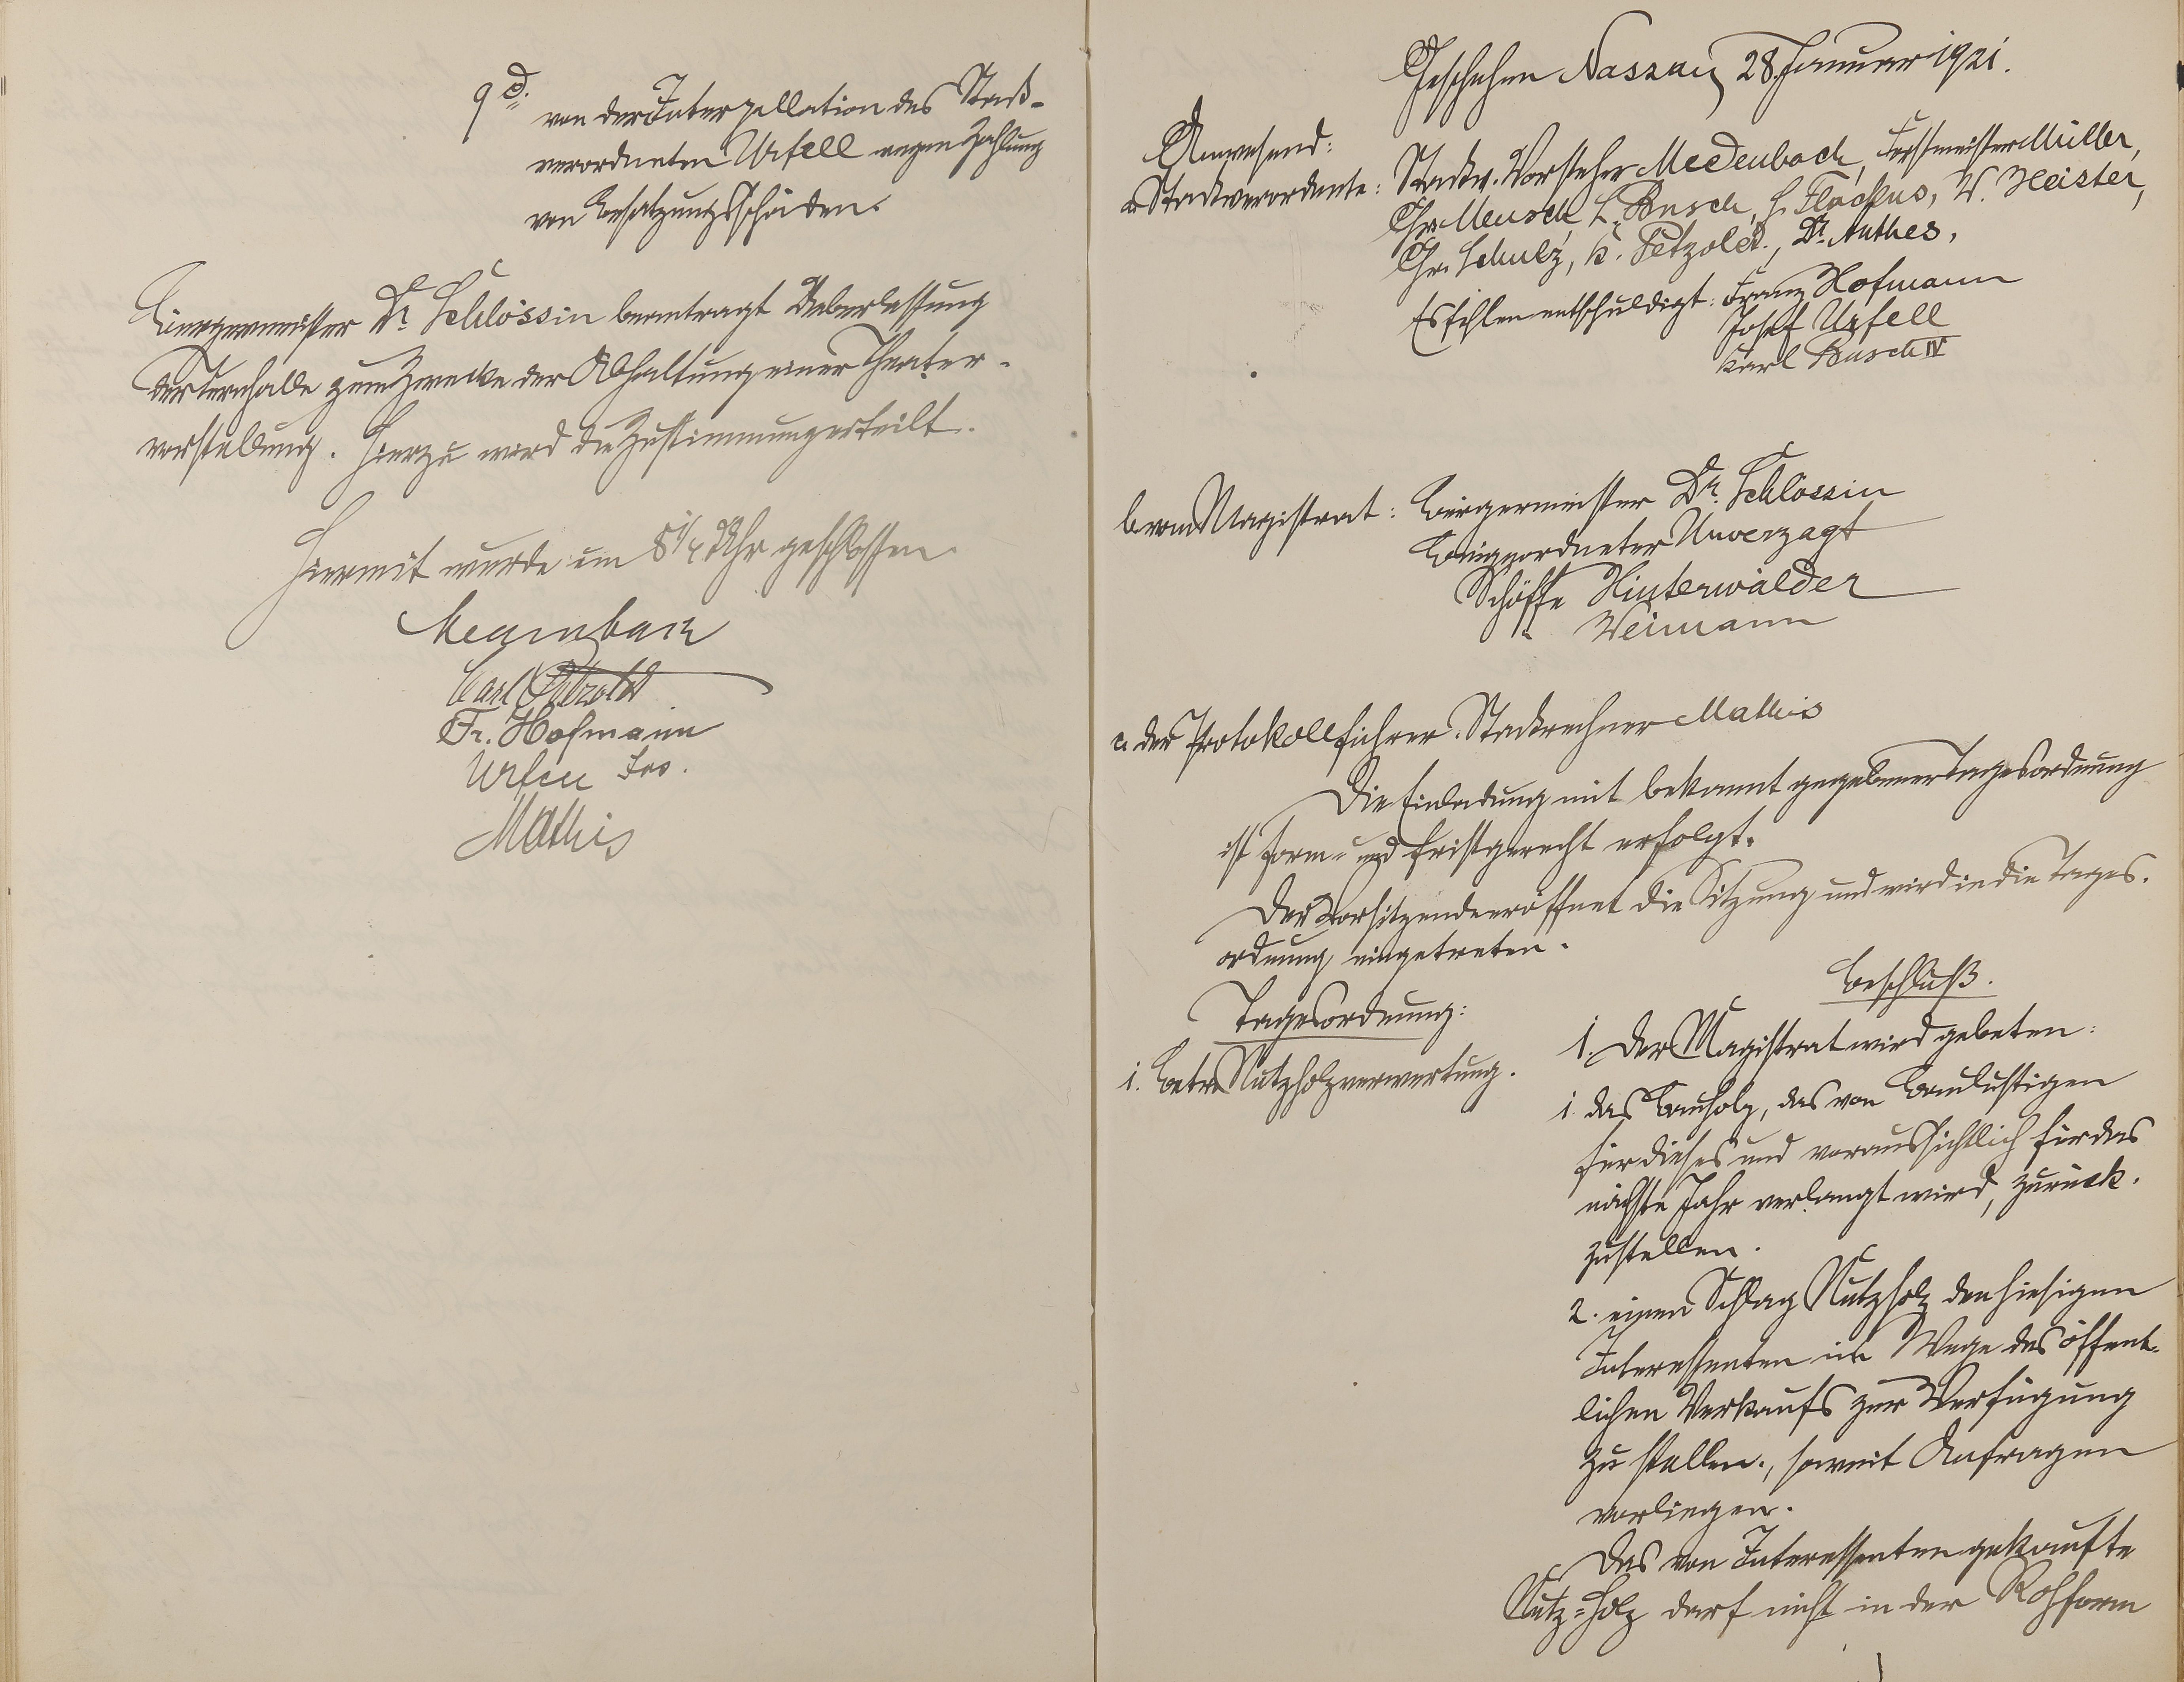 9 d. von der Interpellation des Stadt-
verordneten Urfell wegen Zahlung
von Besatzungsschäden.
Bürgermeister Dr. Schlossin beantragt Ueberlassung
der Turnhalle zum Zwecke der Abhaltung einer Theater-
vorstellung. Hierzu wird die Zustimmung erteilt.
Hiermit wurde um 8 1/4 Uhr geschlossen.
Medenbach
Carl Petzoldt
Fr. Hofmann
Urfell Jos.
Mathis
Geschehen Nassau, 28. Januar 1921.
Anwesend:
a. Stadtverordnete: Stadtv. Vorsteher Medenbach, Forstmeister Müller,
Chr. Meusch, L. Busch, H. Flöckus, W. Heister,
Chr. Schulz, K. Petzoldt., Dr. Anthes,
Es fehlen entschuldigt: Franz Hofmann
Josef Urfell
Karl Busch IV
b. vom Magistrat: Bürgermeister Dr. Schlossin
Beigeordneter Unverzagt
Schöffe Hinterwälder
" Weimann
c. der Protokollführer: Stadtrechner Mathis
Die Einladung mit bekannt gegebener Tagesordnung
ist form- und fristgerecht erfolgt.
Der Vorsitzende eröffnet die Sitzung und wird in die Tages-
ordnung eingetreten.
Tagesordnung:
1. Betr. Nutzholzverwertung.
Beschluß.
1. Der Magistrat wird gebeten:
1. das Bauholz, das von Baulustigen
für dieses und voraussichtlich für das
nächste Jahr verlangt wird, zurück-
zustellen.
2. einen Schlag Nutzholz den hiesigen
Interessenten im Wege des öffent-
lichen Verkaufs zur Verfügung
zu stellen., soweit Anfragen
vorliegen.
Das von Interessenten gekaufte
Nutz-Holz darf nicht in der Rohform